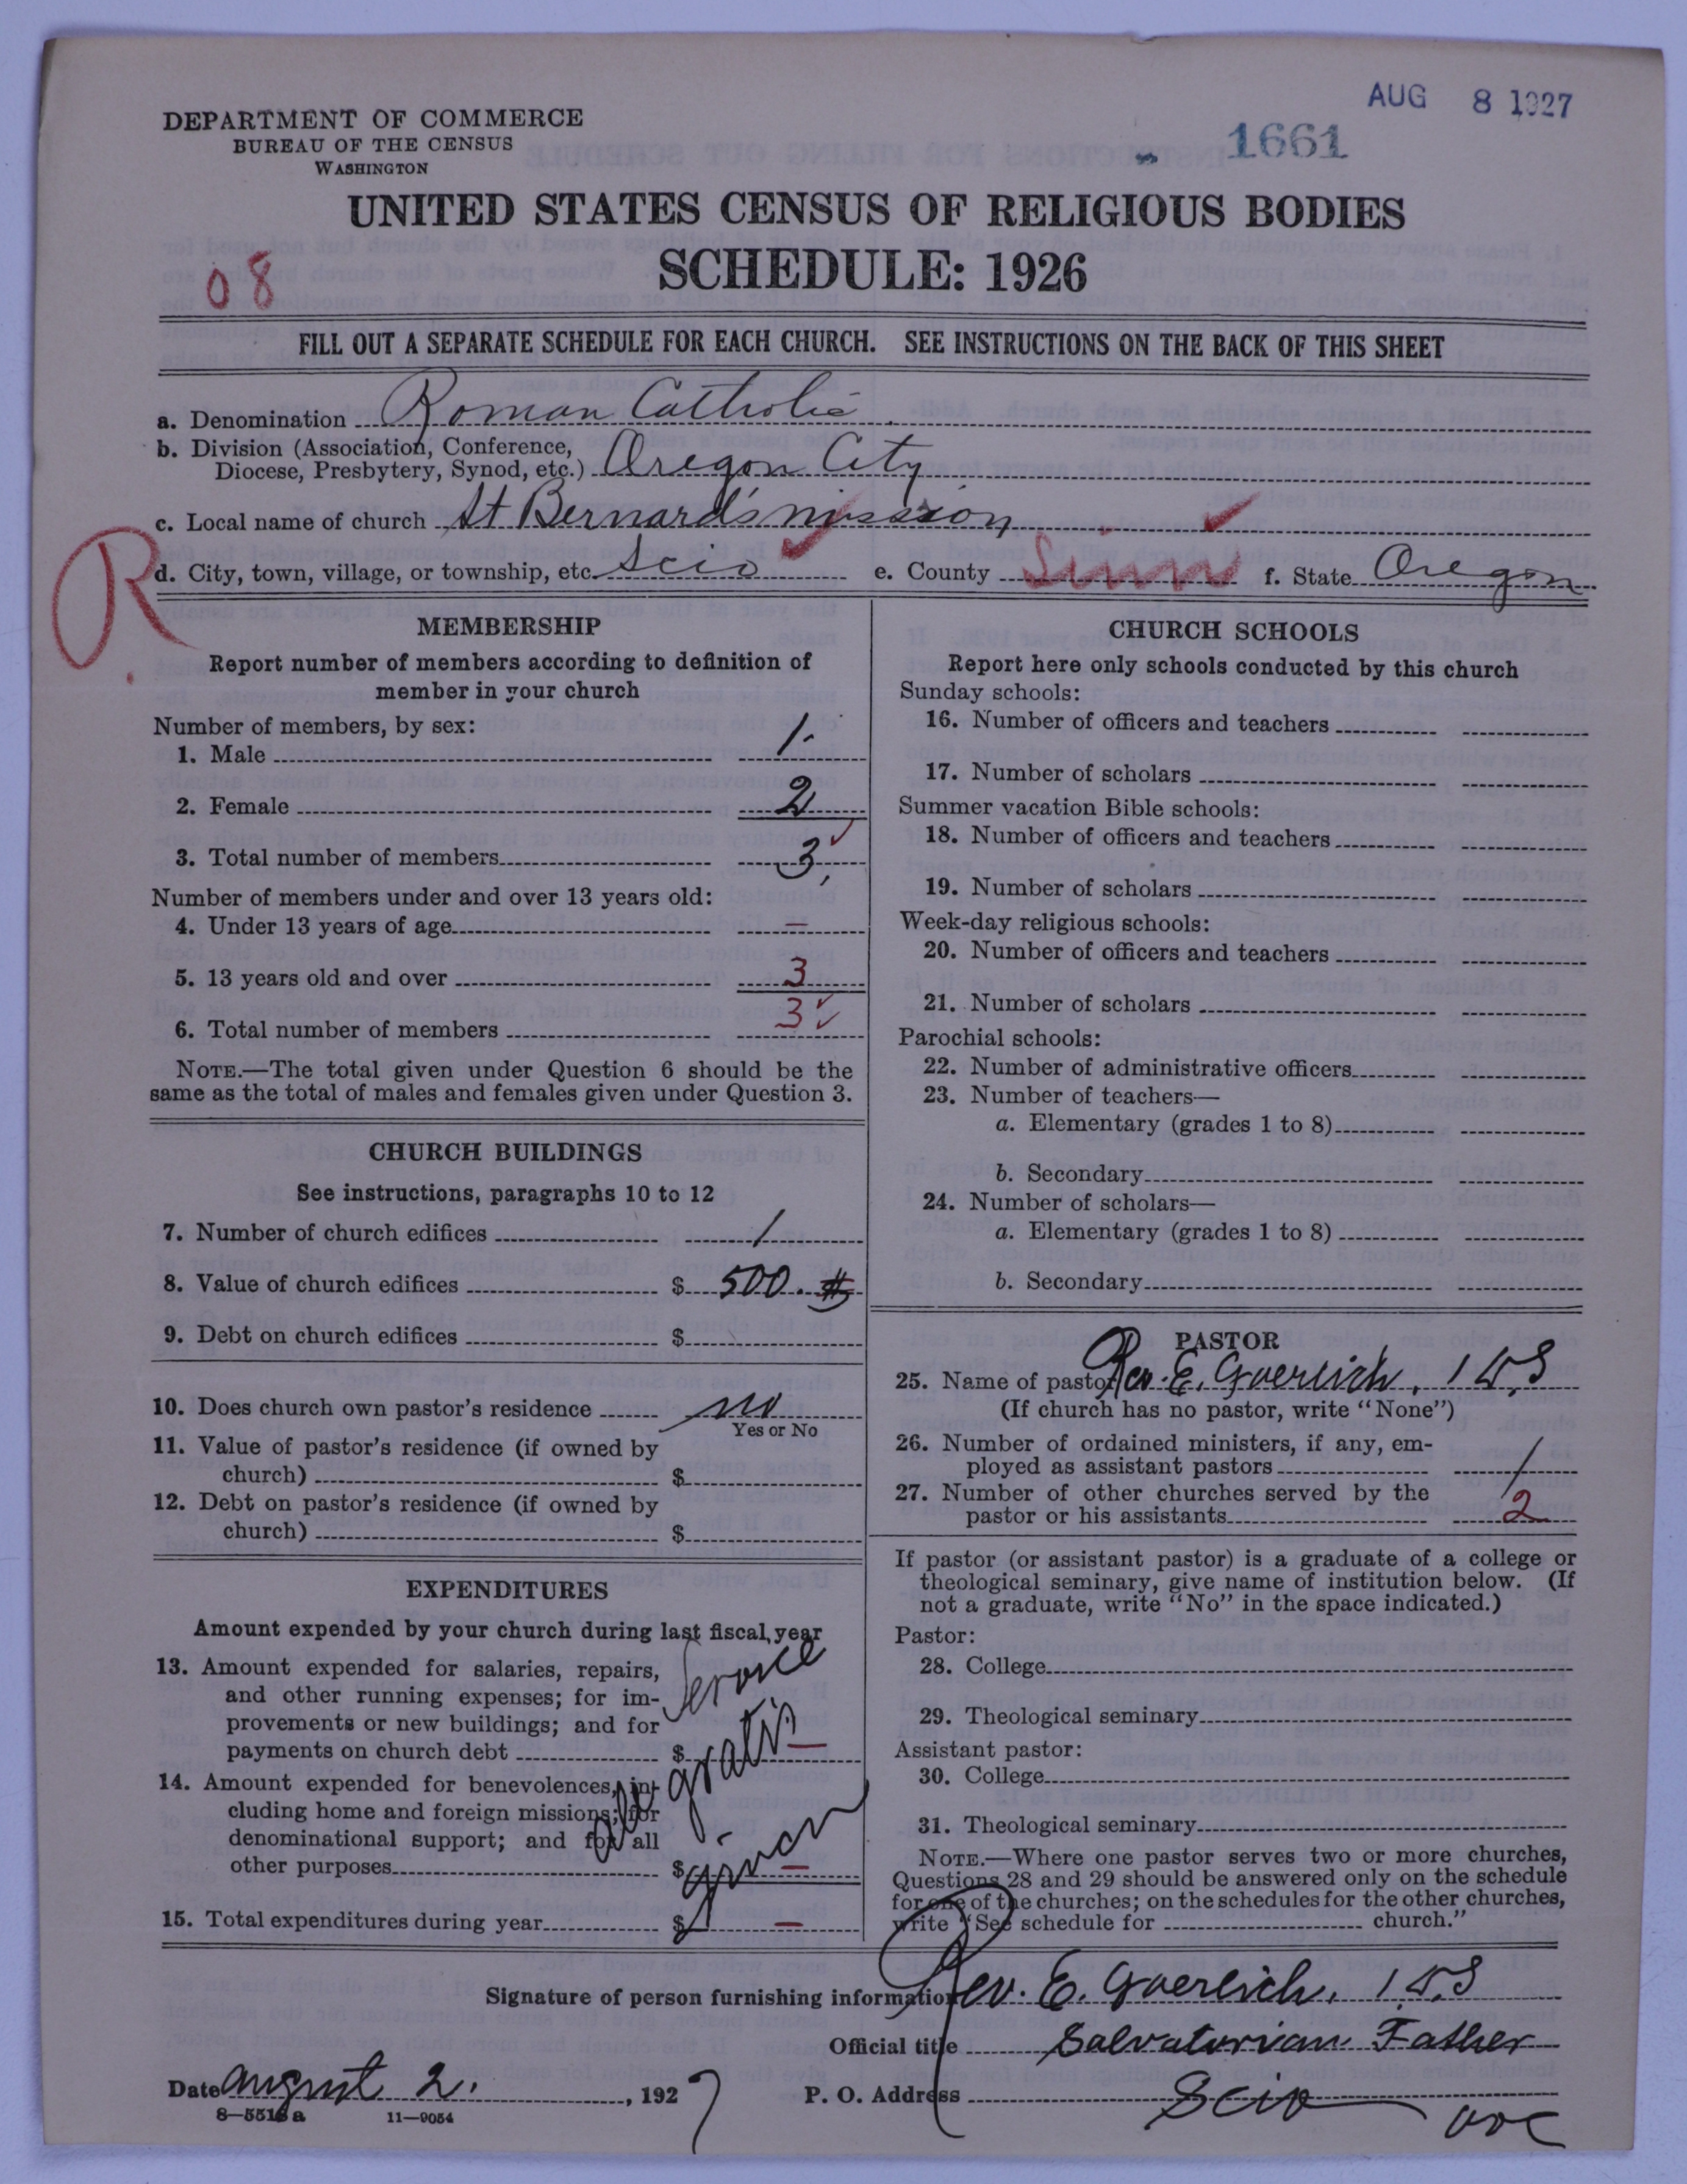 AUG 8 1927
DEPARTMENT OF COMMERCE
BUREAU OF THE CENSUS
WASHINGTON
1661
UNITED STATES CENSUS OF RELIGIOUS BODIES
SCHEDULE: 1926
08
FILL OUT A SEPARATE SCHEDULE FOR EACH CHURCH. SEE INSTRUCTIONS ON THE BACK OF THIS SHEET
a. Denomination Roman Catholic
b. Division (Association, Conference,
Diocese, Presbytery, Synod, etc.) Oregon City
c. Local name of church St Bernard's mission
R
d. City, town, village, or township, etc. Scio e. County Linn f. State Oregon
MEMBERSHIP
Report number of members according to definition of
member in your church
Number of members, by sex:
1. Male 1.
2. Female 2
3. Total number of members 3,
Number of members under and over 13 years old:
4. Under 13 years of age —
5. 13 years old and over 3
6. Total number of members 3
NOTE.—The total given under Question 6 should be the
same as the total of males and females given under Question 3.
CHURCH BUILDINGS
See instructions, paragraphs 10 to 12
7. Number of church edifices 1
8. Value of church edifices $ 500. #
9. Debt on church edifices $
10. Does church own pastor's residence no
Yes or No
11. Value of pastor's residence (if owned by
church) $
12. Debt on pastor's residence (if owned by
church) $
EXPENDITURES
Amount expended by your church during last fiscal year
13. Amount expended for salaries, repairs,
and other running expenses; for im-
provements or new buildings; and for
payments on church debt $ —
14. Amount expended for benevolences, in-
cluding home and foreign missions; for
denominational support; and for all
other purposes $ —
15. Total expenditures during year $ —
Service
all gratis
given
CHURCH SCHOOLS
Report here only schools conducted by this church
Sunday schools:
16. Number of officers and teachers
17. Number of scholars
Summer vacation Bible schools:
18. Number of officers and teachers
19. Number of scholars
Week-day religious schools:
20. Number of officers and teachers
21. Number of scholars
Parochial schools:
22. Number of administrative officers
23. Number of teachers—
a. Elementary (grades 1 to 8)
b. Secondary
24. Number of scholars—
a. Elementary (grades 1 to 8)
b. Secondary
PASTOR
25. Name of pastor Rev. E. Goerlich,
(If church has no pastor, write "None")
26. Number of ordained ministers, if any, em-
ployed as assistant pastors /
27. Number of other churches served by the
pastor or his assistants 2
If pastor (or assistant pastor) is a graduate of a college or
theological seminary, give name of institution below. (If
not a graduate, write "No" in the space indicated.)
Pastor:
28. College
29. Theological seminary
Assistant pastor:
30. College
31. Theological seminary
NOTE.—Where one pastor serves two or more churches,
Questions 28 and 29 should be answered only on the schedule
for one of the churches; on the schedules for the other churches,
write "See schedule for church."
Signature of person furnishing information Rev. E. Goerlich,
Official title Salvatorian Father
Date August 2. , 1927 P. O. Address Scio
Ore
8—5516a 11—9054